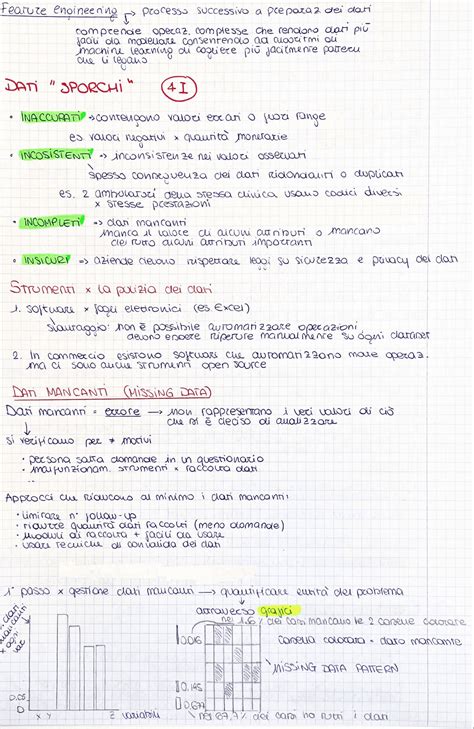 Feature engineering → processo successivo a preparaz. dei dati
comprende operaz. complesse che rendono dati più
facili da modellare consentendo ad algoritmi di
machine learning di cogliere più facilmente pattern
che li legano
DATI "SPORCHI" 4I
• INACCURATI → contengono valori errati o fuori range
es valori negativi x quantità monetarie
• INCOSISTENTI → inconsistenze nei valori osservati
spesso conseguenza dei dati ridondanti o duplicati
es. 2 ambulatori della stessa clinica usano codici diversi
x stesse prestazioni
• INCOMPLETI → dati mancanti
manca il valore di alcuni attributi o mancano
del tutto alcuni attributi importanti
• INSICURI => aziende devono rispettare leggi su sicurezza e privacy dei dati
Strumenti x la pulizia dei dati
1. software x fogli elettronici (es Excel)
svantaggio: non è possibile automatizzare operazioni
devono essere ripetute manualmente su ogni dataset
2. In commercio esistono software che automatizzano molte operaz.
ma ci sono anche strumenti open source
DATI MANCANTI (MISSING DATA)
Dati mancanti = errore → non rappresentano i veri valori di ciò
che si è deciso di analizzare
si verificano per ≠ motivi
• persona salta domande in un questionario
• malfunzionam. strumenti x raccolta dati
...
Approcci che riducono al minimo i dati mancanti:
• limitare n° follow-up
• ridurre quantità dati raccolti (meno domande)
• moduli di raccolta + facili da usare
• usare tecniche di convalida dei dati
1° passo x gestione dati mancanti → quantificare entità del problema
attraverso grafici
nel 1.6% dei casi mancano le 2 caselle colorate
dati
mancanti
x ogni
var.
0.016
casella colorata = dato mancante
MISSING DATA PATTERN
0.05
0
0.145
0.677
X Y Z variabili
nel 67,7% dei casi ho tutti i dati